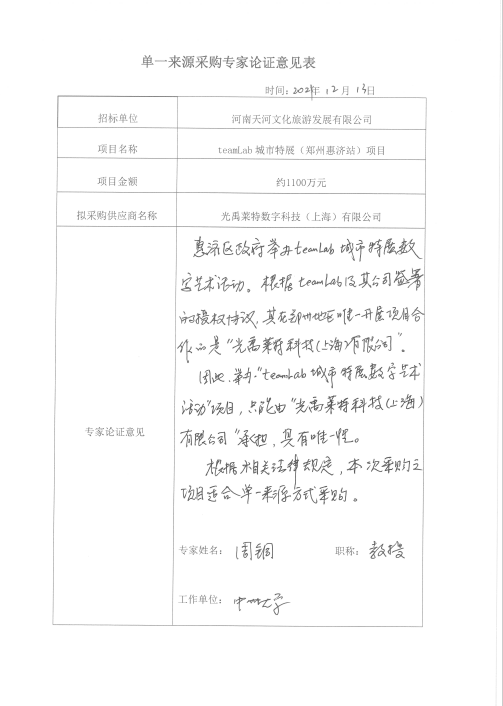 单一来源采购专家论证意见表
时间：2024年12月13日
招标单位 河南天河文化旅游发展有限公司
项目名称 teamLab 城市特展（郑州惠济站）项目
项目金额 约1100万元
拟采购供应商名称 光禹莱特数字科技（上海）有限公司
专家论证意见
惠济区政府举办teamLab 城市特展数
字艺术活动。根据teamLab及其公司签署
的授权协议，其在郑州地区唯一开展项目合
作的是“光禹莱特科技（上海）有限公司”。
因此，举办“teamLab城市特展数字艺术
活动”项目，只能由“光禹莱特科技（上海）
有限公司”承担，具有唯一性。
根据相关法律规定，本次采购之
项目适合单一来源方式采购。
专家姓名： 周 职称： 教授
工作单位： 中州大学